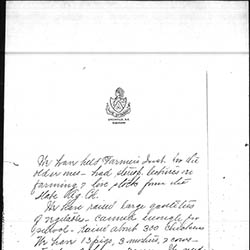 We have held Farmers Inst. for the
older men – had stereop. lectures on
farming & live stock from the
State Ag Col.
We have raised large quantities
of vegetables – canned enough for
school – raise about 300 chickens
We have 13 pigs, 3 mules, & cows –